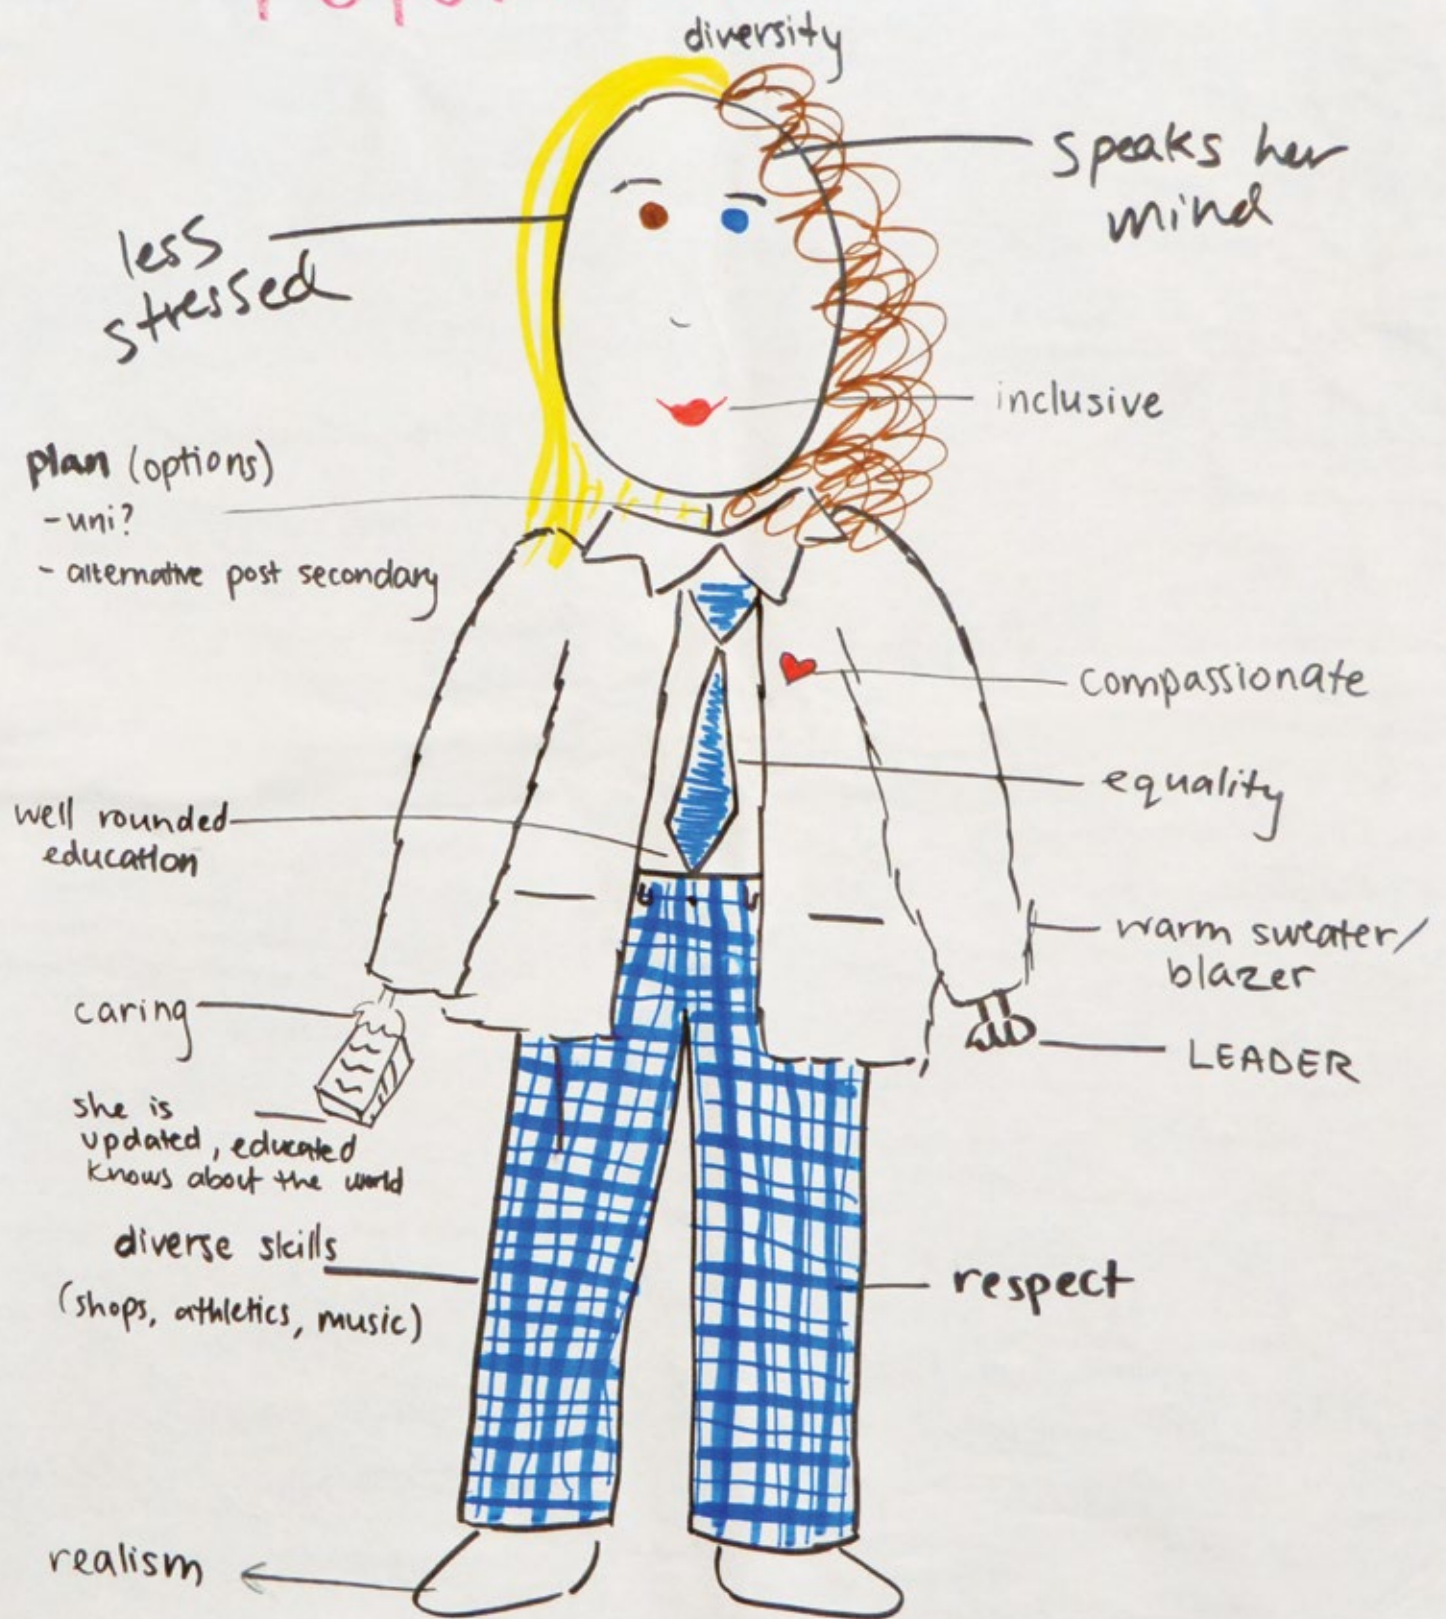 diversity
speaks her
mind
less
stressed
inclusive
plan (options)
- uni?
- alternative post secondary
compassionate
equality
well rounded
education
warm sweater/
blazer
caring
LEADER
she is
updated, educated
knows about the world
diverse skills
(shops, athletics, music)
respect
realism